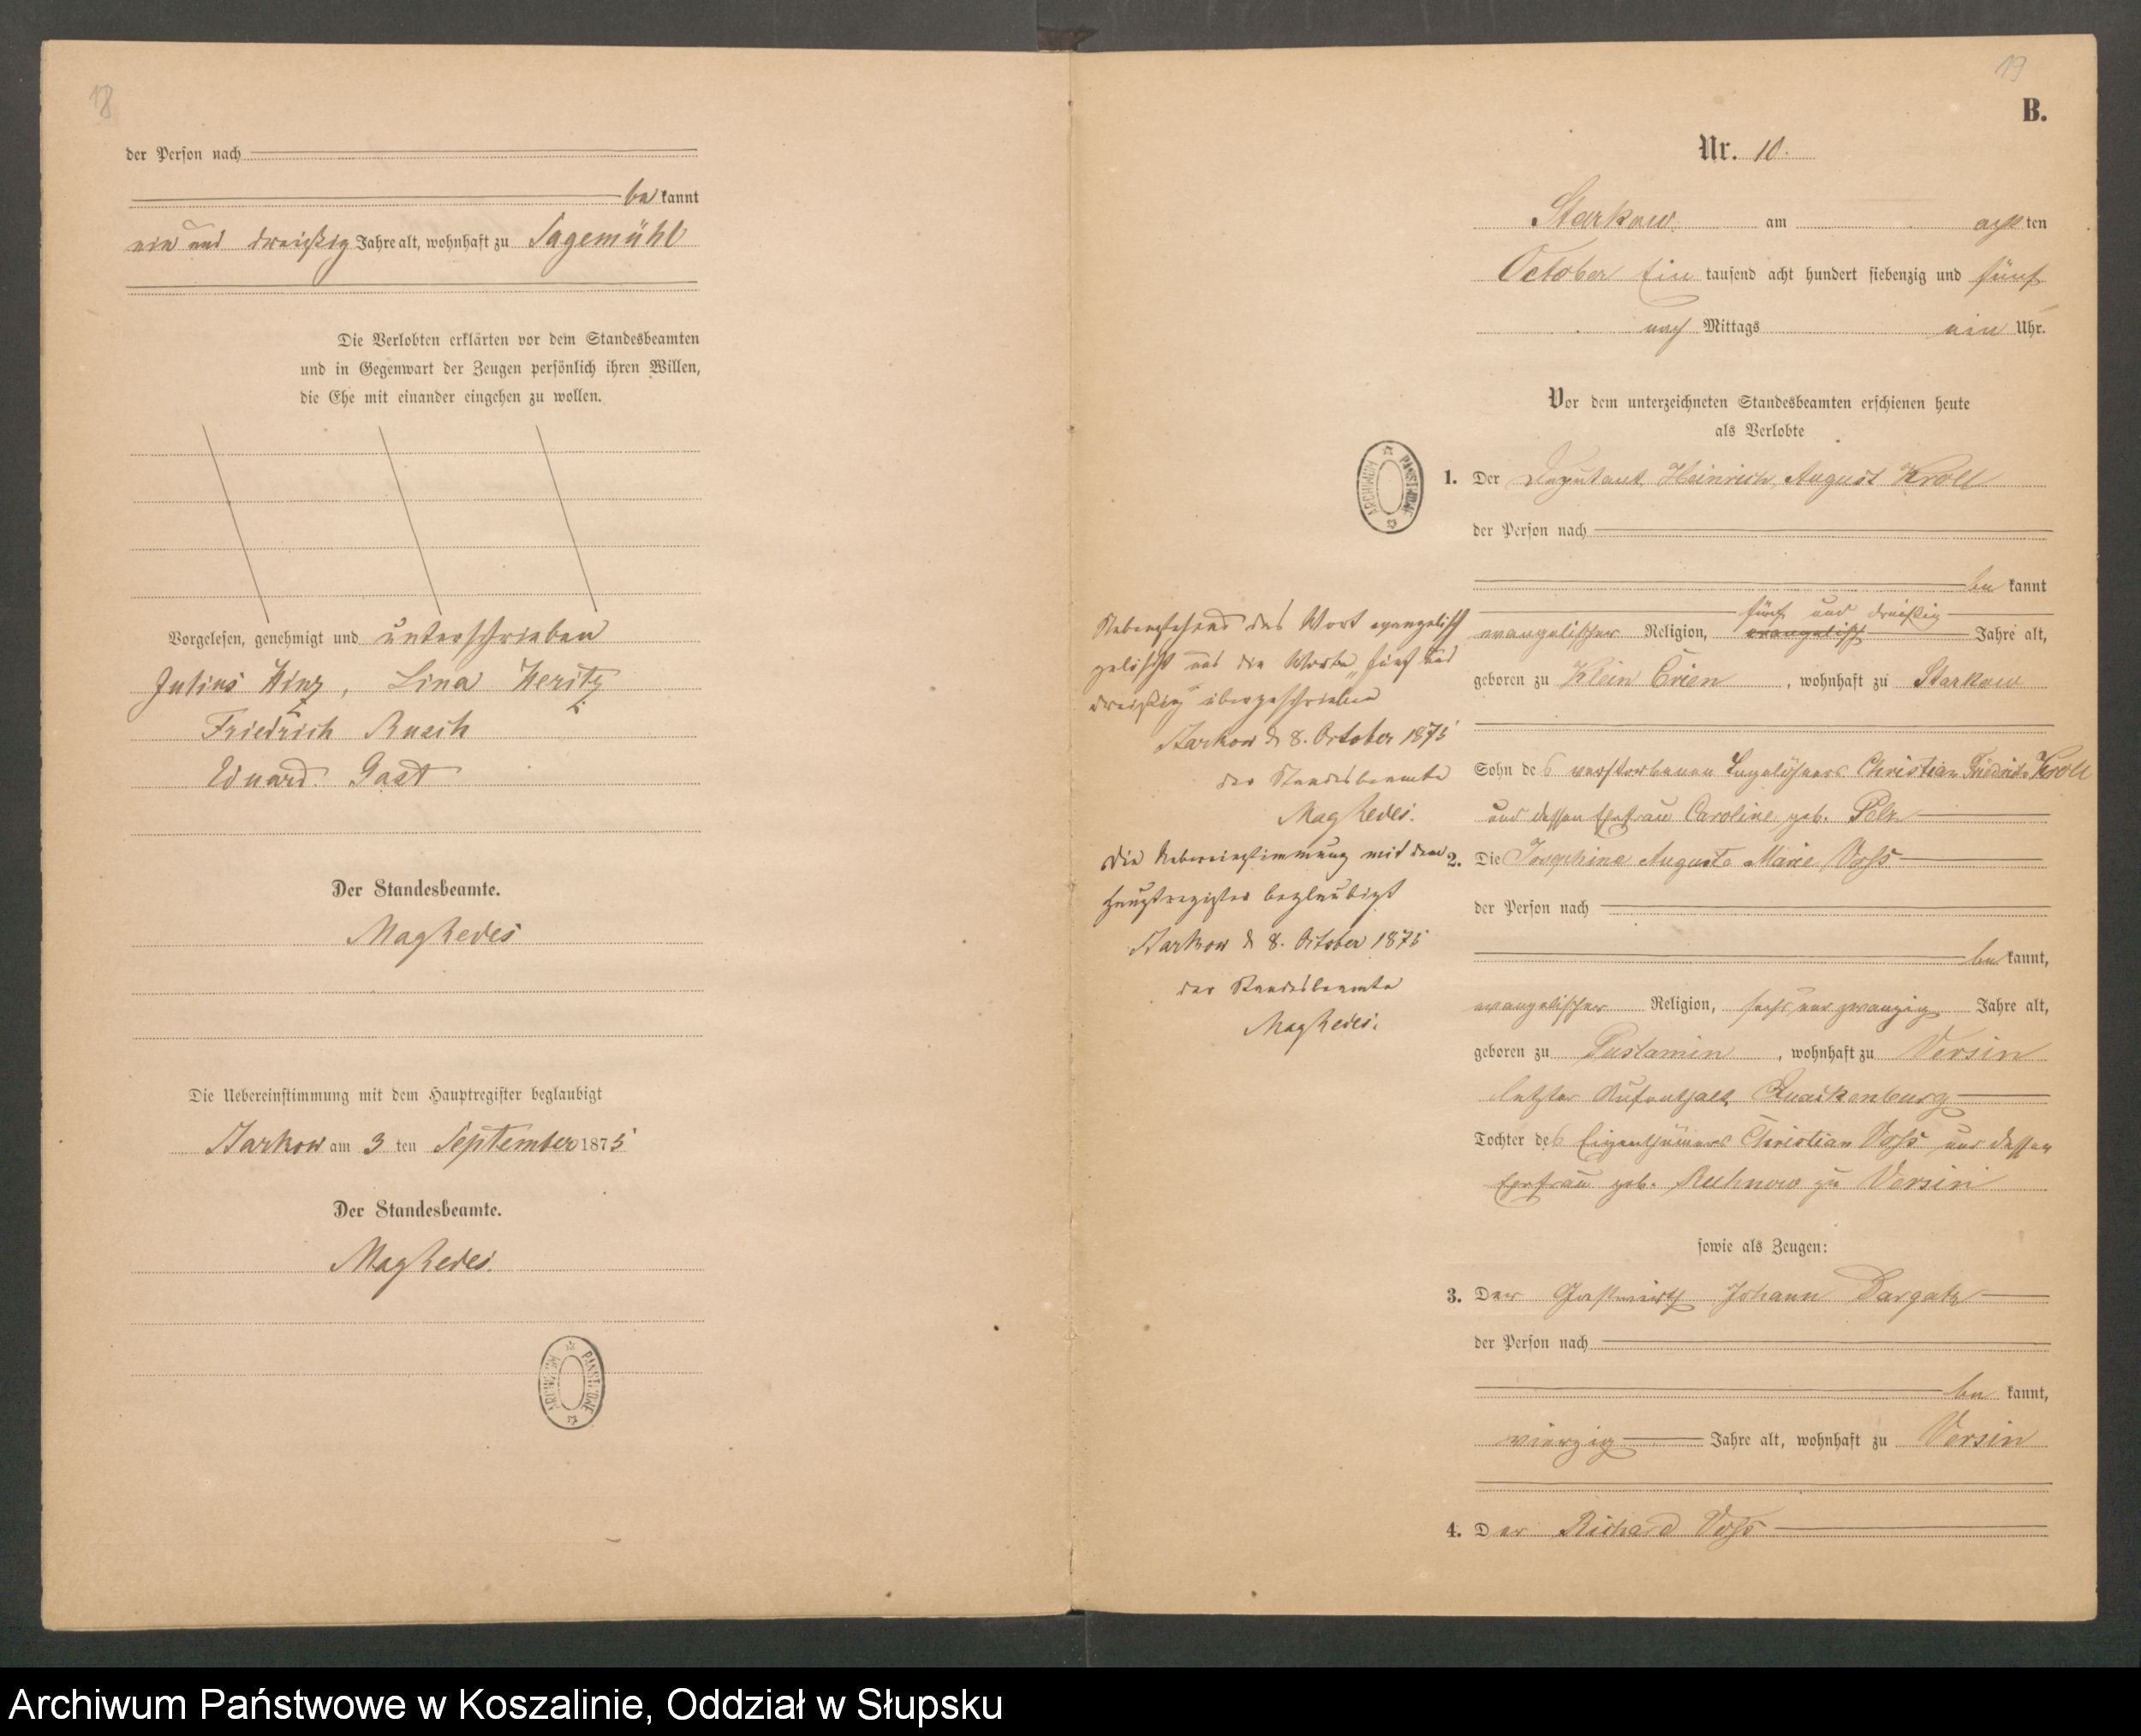 18
der Person nach
be kannt
ein und dreißig Jahre alt, wohnhaft zu Sagemühl
Die Verlobten erklärten vor dem Standesbeamten
und in Gegenwart der Zeugen persönlich ihren Willen,
die Ehe mit einander eingehen zu wollen.
Vorgelesen, genehmigt und unterschrieben
Julius Hinz, Lina
Friedrich Rusch
Eduard Gast
Der Standesbeamte.
Die Uebereinstimmung mit dem Hauptregister beglaubigt
Starkow am 3 ten September 1875
Der Standesbeamte.
ARCHIWUM PAŃSTWOWE
19
B.
Nr. 10.
Starkow am achten
October Ein tausend acht hundert siebenzig und fünf
nach Mittags ein Uhr.
Vor dem unterzeichneten Standesbeamten erschienen heute
als Verlobte
1. Der Deputant Heinrich August Kroll
der Person nach
be kannt
fünf und dreißig
evangelischer Religion, evangelisch Jahre alt,
geboren zu Klein Crien, wohnhaft zu Starkow
Sohn des verstorbenen Tagelöhners Christian Friedrich Kroll
und dessen Ehefrau Caroline geb. Pelz
2. Die Josephine Auguste Marie Voß
der Person nach
be kannt,
evangelischer Religion, sechs und zwanzig Jahre alt,
geboren zu Pustamin, wohnhaft zu Versin
letzter Aufenthalt Quackenburg
Tochter des Eigenthümers Christian Voß und dessen
Ehefrau geb. Ruhnow zu Versin
sowie als Zeugen:
3. Der Gastwirth Johann Dargatz
der Person nach
be kannt,
vierzig Jahre alt, wohnhaft zu Versin
4. Der Richard Voß
ARCHIWUM PAŃSTWOWE
Nebenstehend das Wort evangelisch
gelöscht und die Worte „fünf und
dreißig" übergeschrieben
Starkow d 8. October 1875
der Standesbeamte
Die Uebereinstimmung mit dem
Hauptregister beglaubigt
Starkow d 8. October 1875
der Standesbeamte
Archiwum Państwowe w Koszalinie, Oddział w Słupsku